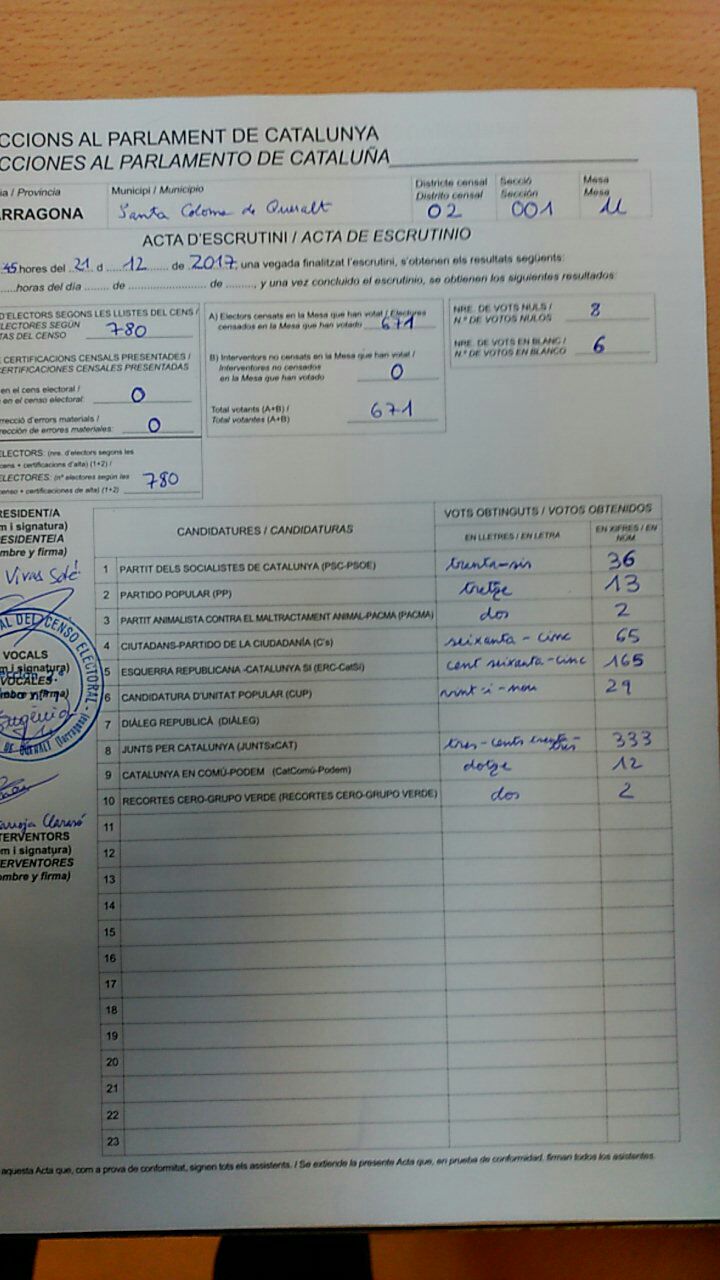 CCIONS AL PARLAMENT DE CATALUNYA
CCIONES AL PARLAMENTO DE CATALUÑA
ia / Provincia
RRAGONA
Municipi / Municipio
Santa Coloma de Queralt
Districte censal
Distrito censal
02
Secció
Sección
001
Mesa
Mesa
U
ACTA D'ESCRUTINI / ACTA DE ESCRUTINIO
45 hores del 21 d 12 de 2017, una vegada finalitzat l'escrutini, s'obtenen els resultats següents:
horas del día ........ de .................. de ........, y una vez concluido el escrutinio, se obtienen los siguientes resultados:
D'ELECTORS SEGONS LES LLISTES DEL CENS /
LECTORES SEGÚN
TAS DEL CENSO 780
CERTIFICACIONS CENSALS PRESENTADES /
ERTIFICACIONES CENSALES PRESENTADAS
en el cens electoral /
en el censo electoral: 0
rrecció d'errors materials /
rección de errores materiales: 0
ELECTORS: (nre. d'electors segons les
cens + certificacions d'alta) (1+2) /
ELECTORES: (nº electores según las
censo + certificaciones de alta) (1+2) 780
A) Electors censats en la Mesa que han votat / Electores
censados en la Mesa que han votado 671
B) Interventors no censats en la Mesa que han votat /
Interventores no censados
en la Mesa que han votado 0
Total votants (A+B) /
Total votantes (A+B) 671
NRE. DE VOTS NULS /
N.º DE VOTOS NULOS 8
NRE. DE VOTS EN BLANC /
N.º DE VOTOS EN BLANCO 6
RESIDENT/A
m i signatura)
RESIDENTE/A
mbre y firma)
Vivas Solé
AL DEL CENSO ELECTORAL
VOCALS
m i signatura)
VOCALES
mbre y firma)
Eugènia
DE QUERALT (Tarragona)
TERVENTORS
m i signatura)
ERVENTORES
mbre y firma)
CANDIDATURES / CANDIDATURAS
VOTS OBTINGUTS / VOTOS OBTENIDOS
EN LLETRES / EN LETRA
EN XIFRES / EN NÚM.
1 PARTIT DELS SOCIALISTES DE CATALUNYA (PSC-PSOE) trenta-sis 36
2 PARTIDO POPULAR (PP) tretze 13
3 PARTIT ANIMALISTA CONTRA EL MALTRACTAMENT ANIMAL-PACMA (PACMA) dos 2
4 CIUTADANS-PARTIDO DE LA CIUDADANÍA (C's) seixanta-cinc 65
5 ESQUERRA REPUBLICANA -CATALUNYA SI (ERC-CatSí) cent seixanta-cinc 165
6 CANDIDATURA D'UNITAT POPULAR (CUP) vint-i-nou 29
7 DIÀLEG REPUBLICÀ (DIÀLEG)
8 JUNTS PER CATALUNYA (JUNTSxCAT) tres-cents trenta-tres 333
9 CATALUNYA EN COMÚ-PODEM (CatComú-Podem) dotze 12
10 RECORTES CERO-GRUPO VERDE (RECORTES CERO-GRUPO VERDE) dos 2
11
12
13
14
15
16
17
18
19
20
21
22
23
aquesta Acta que, com a prova de conformitat, signen tots els assistents. / Se extiende la presente Acta que, en prueba de conformidad, firman todos los asistentes.